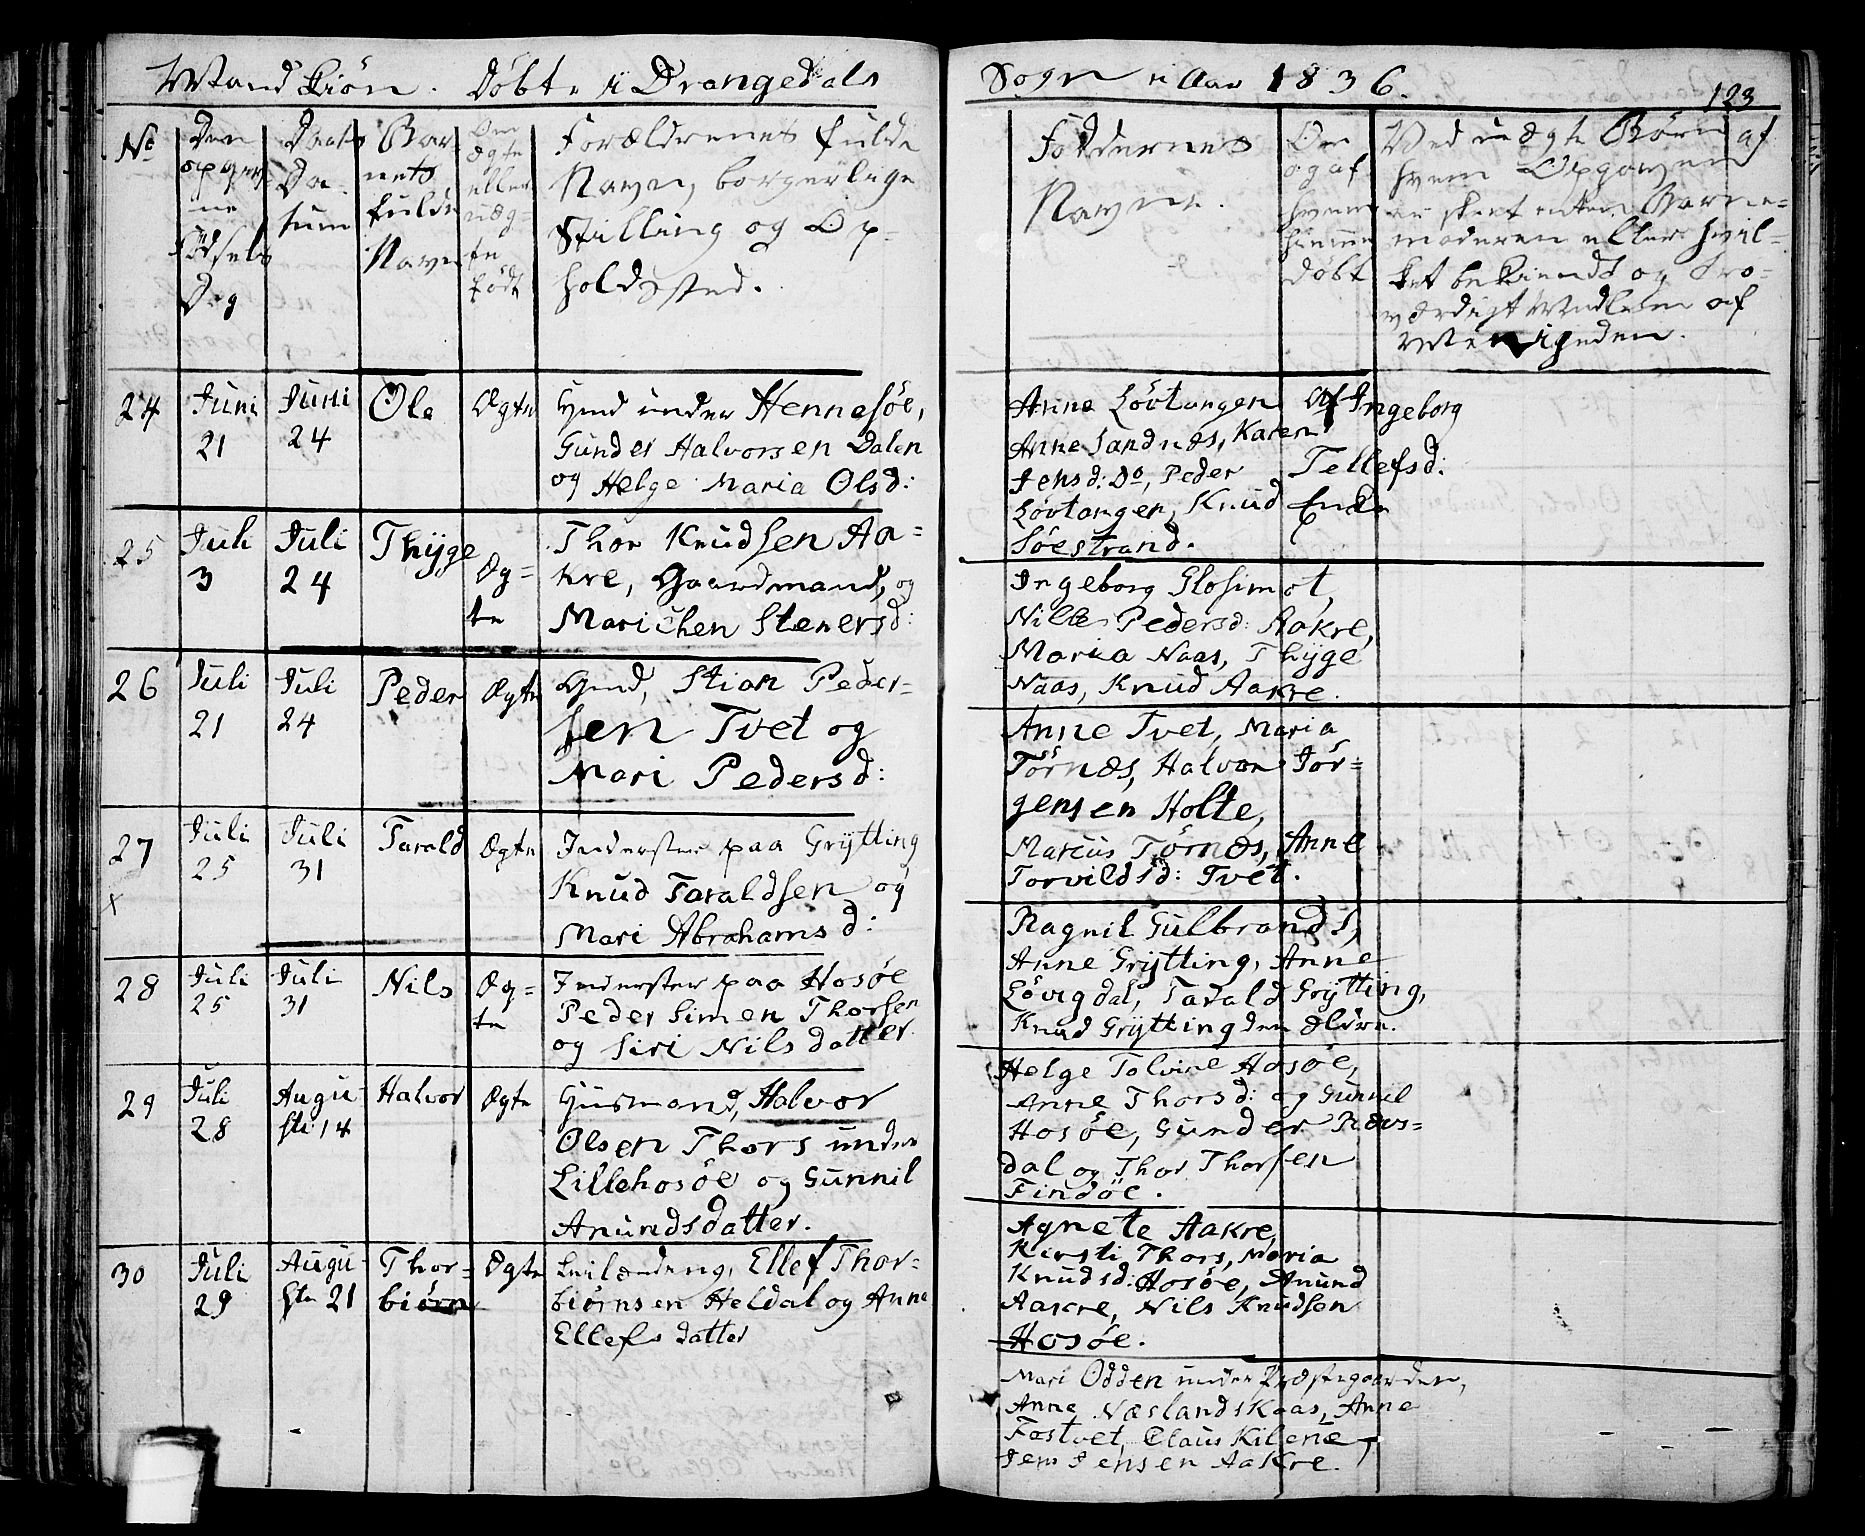 Mandkiön. Døbte i Drangedals
Sogn i Aar 1836.
123
No
Den
opgiv-
ne
Fødsels
Dag
Daabs
Da-
tum
Bar-
nets
fulde
Navn
Om
Ægte
eller
uæg-
te
født
Forældrenes fulde
Navn, borgerlige
Stilling og Op-
holdssted.
Faddernes
Navne.
Om
og af
hvem
hiemme
døbt
Ved uægte Børn af
hvem Opgaven
er skeet enten Barne-
moderen eller hvil-
ket bekiendt og tro-
værdigt Medlem af
Menigheden.
24
Juni
21
Juni
24
Ole
Ægte
Hmd under Hennesöe,
Gunder Halvorsen Dalen
og Helge Maria Olsd:
Anne Lövtangen
Anne Sandnæs, Karen
Jensd: Do, Peder
Lövtangen, Knud
Söestrand.
Af Ingeborg
Tellefsd:
Enke
25
Juli
3
Juli
24
Thÿge
Æg-
te
Thor Knudsen Aa-
kre, Gaardmand, og
Marichen Stenersd:
Ingeborg Glosimot,
Nille Pedersd: Aakre,
Maria Naas, Thÿge
Naas, Knud Aakre.
26
Juli
21
Juli
24
Peder
Ægte
Gmd, Stian Peder-
sen Tvet og
Mari Pedersd:
Anne Tvet, Maria
Törnæs, Halvor Jör-
gensen Holte,
Marcus Törnæs, Anne
Torvildsd: Tvet.
27
x
Juli
25
Juli
31
Tarald
Ægte
Inderster paa Grÿtting
Knud Taraldsen og
Mari Abrahamsd:
Ragnil Gulbrands,
Anne Grÿtting, Anne
Lövigdal, Tarald Grÿtting,
Knud Grÿtting den ældre.
28
Juli
25
Juli
31
Nils
Æg-
te
Inderster paa Hosöe
Peder Simen Thorsen
og Siri Nilsdatter.
Helge Tolvine Hosöe,
Anne Thorsd: og Gunnil
Hosöe, Gunder Røers-
dal og Thor Thorsen
Findöe.
29
Juli
28
Augu-
sti 14
Halvor
Ægte
Huusmand, Halvor
Olsen Thors under
Lillehosöe og Gunnil
Anundsdatter.
Agnete Aakre,
Kirsti Thors, Maria
Knudsd: Hosöe, Anund
Aakre, Nils Knudsen
Hosöe.
30
Juli
29
Augu-
sti 21
Thor-
biörn
Ægte
Leilænding, Ellef Thor-
biörnsen Heldal og Anne
Ellefsdatter
Mari Odden under Præstegaarden,
Anne Næslandskaas, Anne
Fostvet, Claus Kilene,
Jens Jensen Aakre.